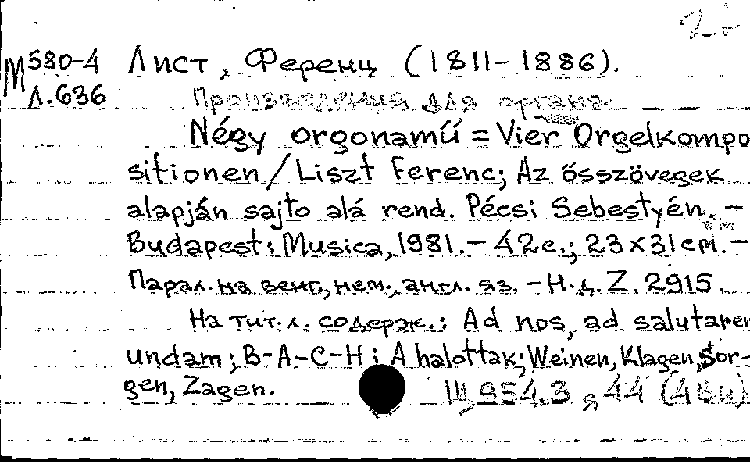 М 580-4 Лист, Ференц (1811-1886).
Л.636 Произведения для органа.
Négy orgonamű = Vier Orgelkompo
sitionen / Liszt Ferenc; Az összövegek
alapján sajto alá rend. Pécsi Sebestyén. -
Budapest: Musica, 1981. - 42с.; 23x31cm. -
Парал. на венг., нем., англ. яз. - Н.д. Z. 2915.
На тит. л. содерж.: Ad nos, ad salutarem
undam; B-A-C-H; A halottak; Weinen, Klagen, Sor-
gen, Zagen.
Щ954.3 я44